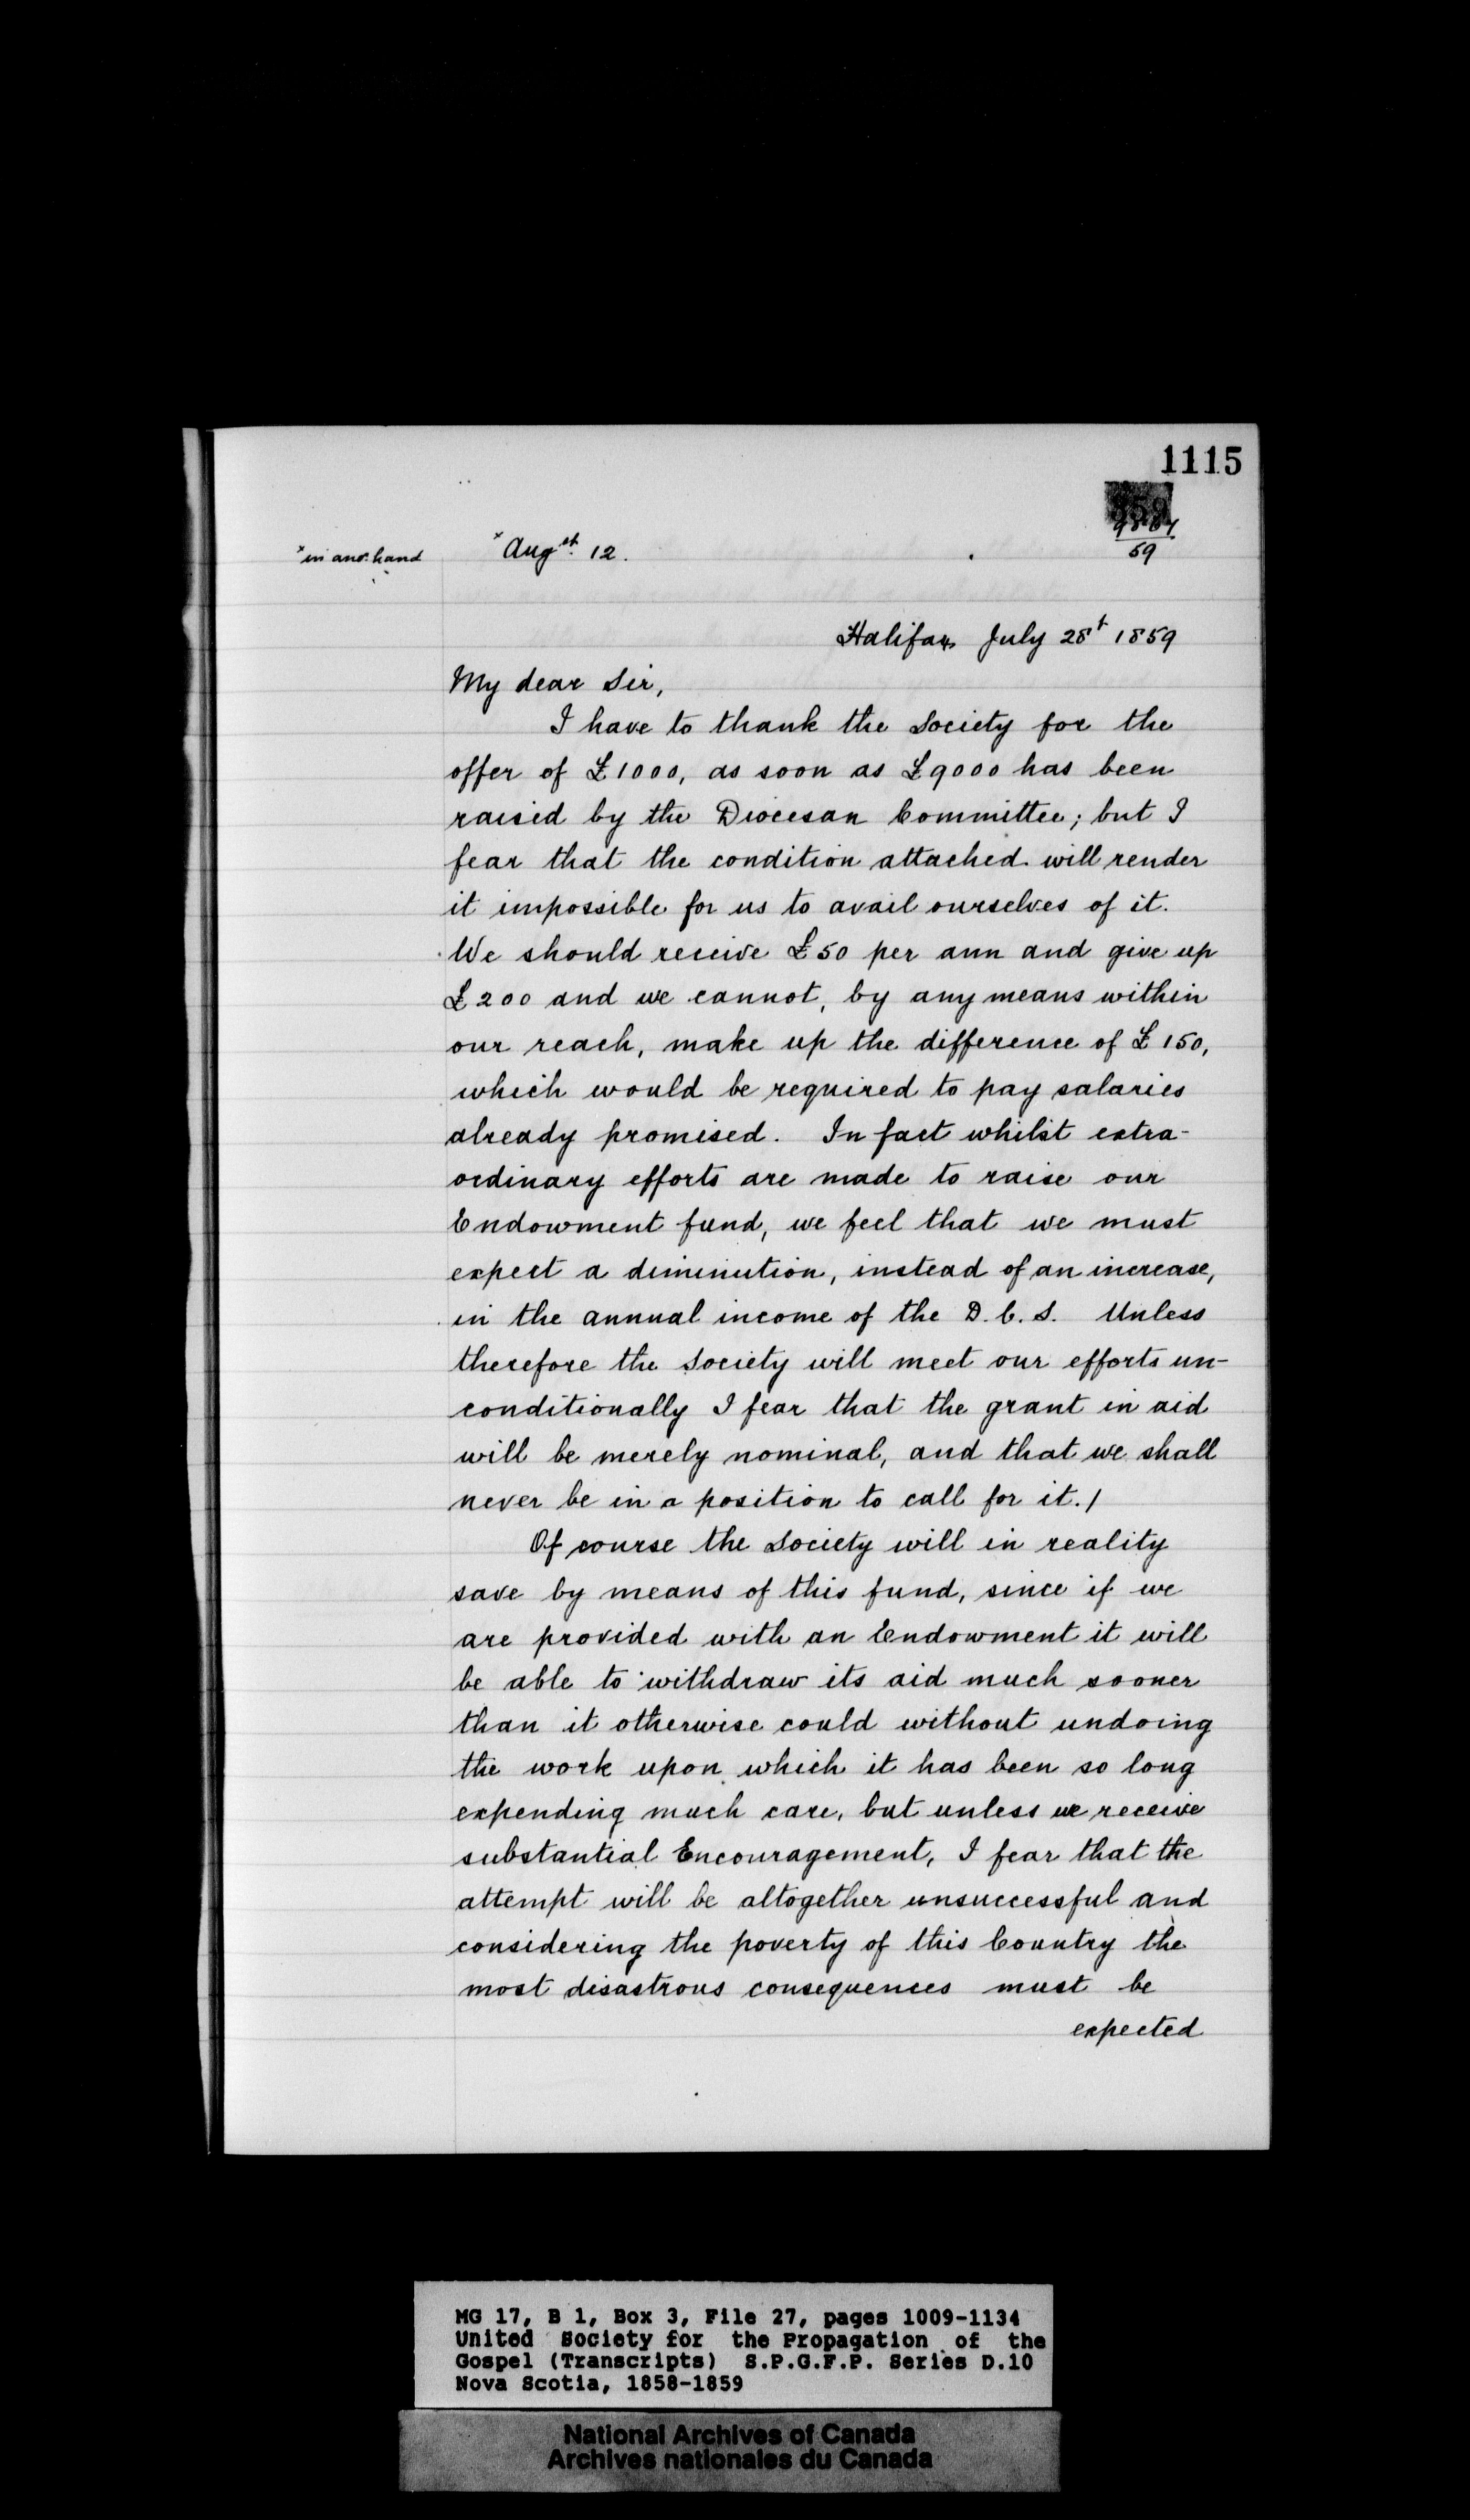 1115
59
×in ano. hand
×Augst. 12.
Halifax July 28t 1859
My dear Sir,
I have to thank the Society for the
offer of £1000, as soon as £9000 has been
raised by the Diocesan Committee; but I
fear that the condition attached will render
it impossible for us to avail ourselves of it.
We should receive £50 per ann and give up
£200 and we cannot, by any means within
our reach, make up the difference of £150,
which would be required to pay salaries
already promised. In fact whilst extra-
ordinary efforts are made to raise our
Endowment fund, we feel that we must
expect a diminution, instead of an increase,
in the annual income of the D. C. S. Unless
therefore the Society will meet our efforts un-
conditionally I fear that the grant in aid
will be merely nominal, and that we shall
never be in a position to call for it. /
Of course the Society will in reality
save by means of this fund, since if we
are provided with an Endowment it will
be able to withdraw its aid much sooner
than it otherwise could without undoing
the work upon which it has been so long
expending much care, but unless we receive
substantial Encouragement, I fear that the
attempt will be altogether unsuccessful and
considering the poverty of this Country the
most disastrous consequences must be
expected
MG 17, B 1, Box 3, File 27, pages 1009-1134
United Society for the Propagation of the
Gospel (Transcripts) S.P.G.F.P. Series D.10
Nova Scotia, 1858-1859
National Archives of Canada
Archives nationales du Canada